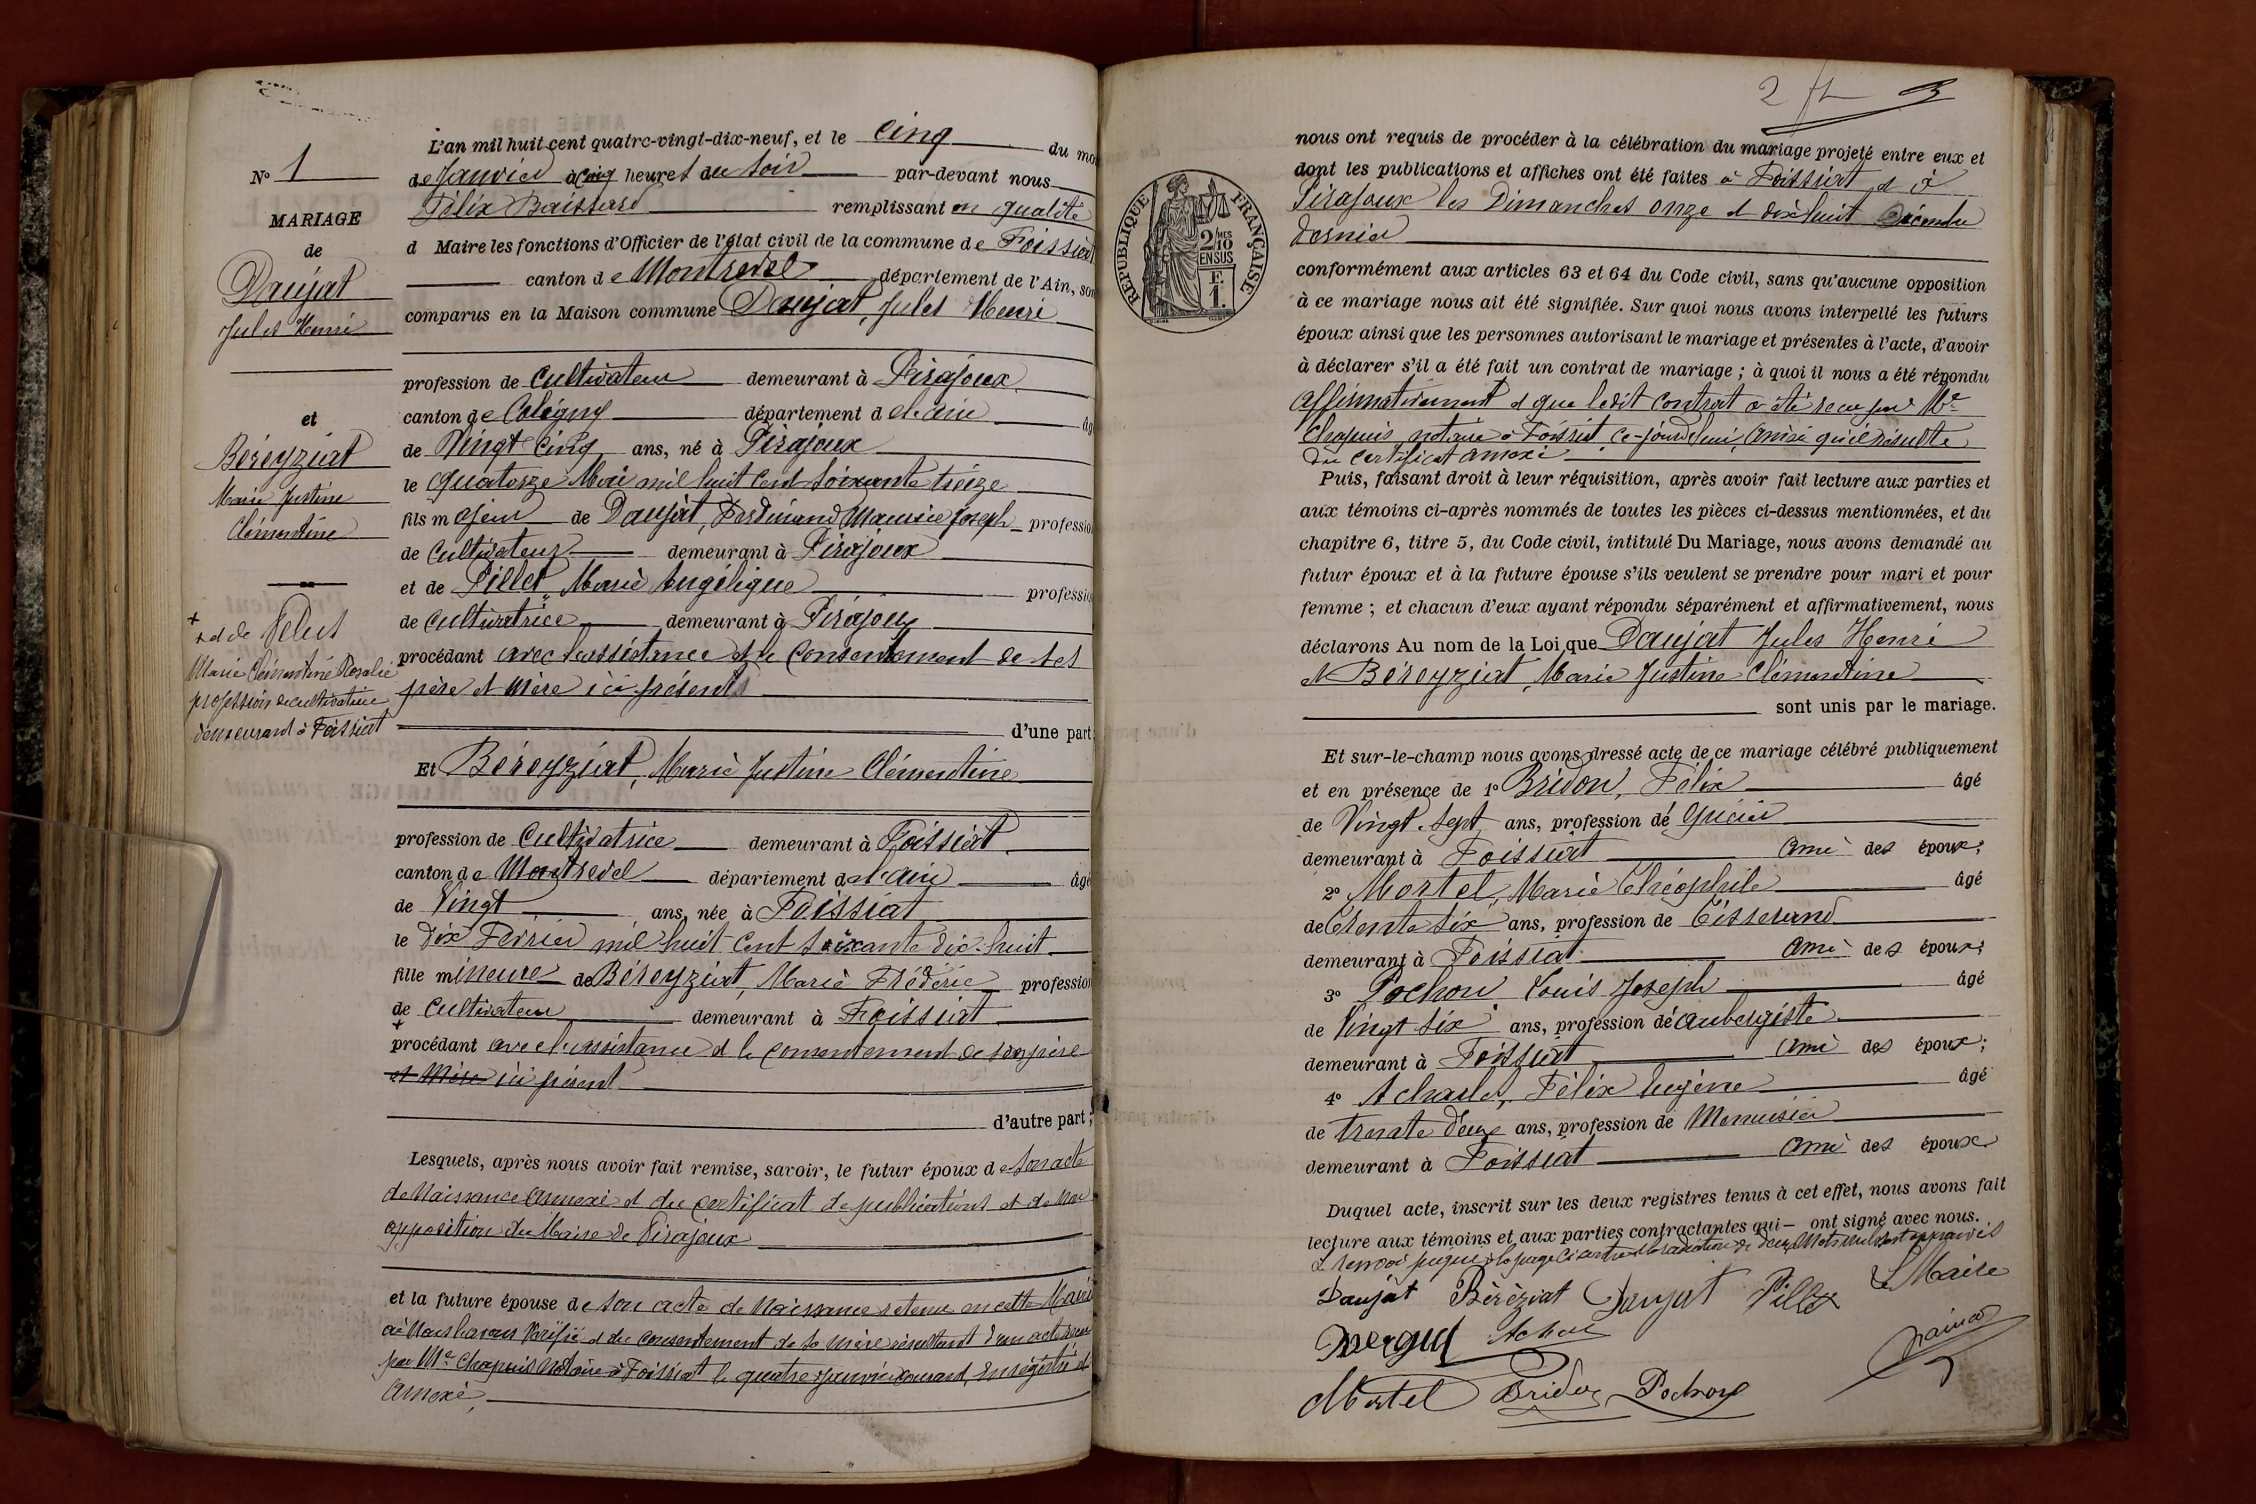 N° 1
MARIAGE
de
Daujat
Jules Henri
et
Béreyziat
Marie Justine
Clémentine
+ et de Velut
Marie Clémentine Rosalie
profession de cultivatrice
demeurant à Foissiat
L'an mil huit cent quatre-vingt-dix-neuf, et le cinq du mo
de Janvier à cinq heures du soir par-devant nous
Félix Baissard remplissant en qualité
d Maire les fonctions d'Officier de l'état civil de la commune de Foissiat
canton de Montrevel département de l'Ain, son
comparus en la Maison commune Daujat, Jules Henri
profession de Cultivateur demeurant à Pirajoux
canton de Coligny département de l'ain âg
de Vingt cinq ans, né à Pirajoux
le quatorze Mai mil huit cent soixante treize
fils majeur de Daujat, Ferdinand Maurice Joseph profession
de Cultivateur demeurant à Pirajoux
et de Pillet, Marie Angélique profession
de cultivatrice demeurant à Pirajoux
procédant avec l'assistance et le consentement de ses
père et mère ici présents
d'une part
Et Béreyziat, Marie Justine Clémentine
profession de Cultivatrice demeurant à Foissiat
canton de Montrevel département de l'ain âgé
de Vingt ans, née à Foissiat
le dix Février mil huit cent soixante dix-huit
fille mineure de Béreyziat, Marie Frédéric profession
de Cultivateur demeurant à Foissiat
+
procédant avec l'assistance et le consentement de son père
et Mère ici présent
d'autre part;
Lesquels, après nous avoir fait remise, savoir, le futur époux de son acte
de Naissance Annexé et du certificat de publications et de non
opposition du Maire de Pirajoux
et la future épouse de son acte de Naissance retenu en cette Mairie
où nous l'avons vérifié et du consentement de sa mère résultant d'un acte reçu
par Me Chapuis Notaire à Foissiat le quatre Janvier courant, Enregistré et
Annexé,
2
RÉPUBLIQUE FRANÇAISE
2/10 MES
EN SUS
F.
1.
nous ont requis de procéder à la célébration du mariage projeté entre eux et
dont les publications et affiches ont été faites à Foissiat et à
Pirajoux les Dimanches onze et dix huit Décembre
dernier
conformément aux articles 63 et 64 du Code civil, sans qu'aucune opposition
à ce mariage nous ait été signifiée. Sur quoi nous avons interpellé les futurs
époux ainsi que les personnes autorisant le mariage et présentes à l'acte, d'avoir
à déclarer s'il a été fait un contrat de mariage; à quoi il nous a été répondu
affirmativement et que ledit contrat a été reçu par Me
Chapuis notaire à Foissiat, ce-jourd'hui, ainsi qu'il résulte
du certificat annexé
Puis, faisant droit à leur réquisition, après avoir fait lecture aux parties et
aux témoins ci-après nommés de toutes les pièces ci-dessus mentionnées, et du
chapitre 6, titre 5, du Code civil, intitulé Du Mariage, nous avons demandé au
futur époux et à la future épouse s'ils veulent se prendre pour mari et pour
femme; et chacun d'eux ayant répondu séparément et affirmativement, nous
déclarons Au nom de la Loi que Daujat Jules Henri
et Béreyziat, Marie Justine Clémentine
sont unis par le mariage.
Et sur-le-champ nous avons dressé acte de ce mariage célébré publiquement
et en présence de 1° Bridon, Félix âgé
de Vingt-sept ans, profession d'épicier
demeurant à Foissiat ami des époux;
2° Mortel, Marie Théophile âgé
de trente six ans, profession de Tisserand
demeurant à Foissiat ami des époux;
3° Pochon Louis Joseph âgé
de Vingt six ans, profession d'aubergiste
demeurant à Foissiat ami des époux;
4° Achard, Félix Eugène âgé
de trente deux ans, profession de Menuisier
demeurant à Foissiat ami des époux
Duquel acte, inscrit sur les deux registres tenus à cet effet, nous avons fait
lecture aux témoins et aux parties contractantes qui ont signé avec nous.
Le renvoi piqué à la page ci contre et la radiation de deux mots nuls sont approuvés
Daujat Béréziat Daujat Pillet Le Maire
Achar
Mortel Bridon Pochon